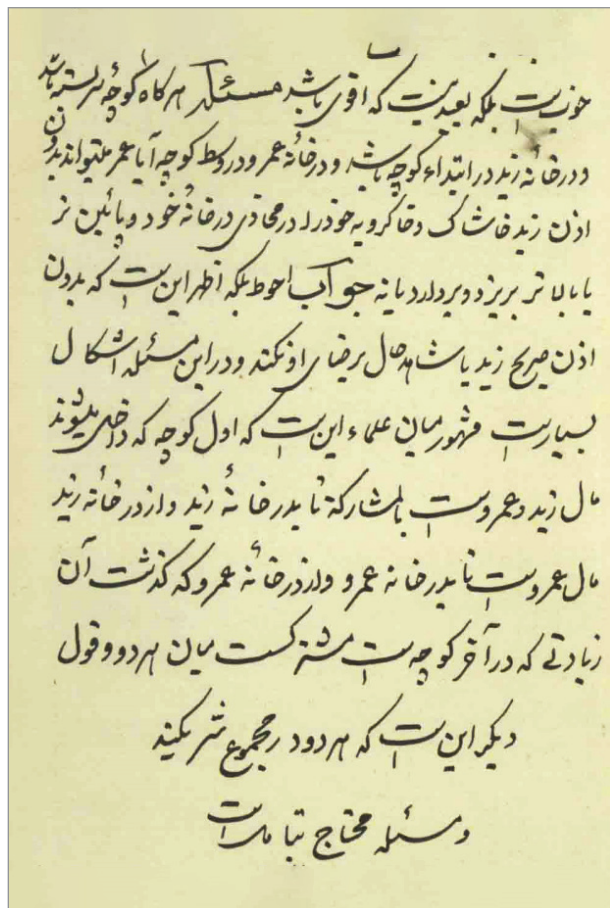 خوبست بلکه بعید نیست که اقوی باشد مسئله هر کاه کوچهٔ سر بسته باشد
و در خانهٔ زید در ابتداء کوچه باشد و در خانهٔ عمرو در وسط کوچه آیا عمر میتواند بدون
اذن زید خاشاک و خاکرویه خود را در محاذی در خانهٔ خود و پائین تر
یا بالا تر بریزد و بردارد یا نه جواب احوط بلکه اظهر این ست که بدون
اذن صریح زید یا شاهد حال برضای او نکند و در این مسئله اشکال
بسیارست مشهور میان علماء این ست که اول کوچه که داخل میشوند
مال زید و عمروست بالمشارکة تا بدر خانهٔ زید و از در خانهٔ زید
مال عمروست تا بدر خانهٔ عمرو و از در خانهٔ عمرو که گذشت آن
زیادتی که در آخر کوچه ست مشترکست میان هر دو و قول
دیکر این ست که هر دو در مجموع شریکند
و مسئله محتاج بتامل است